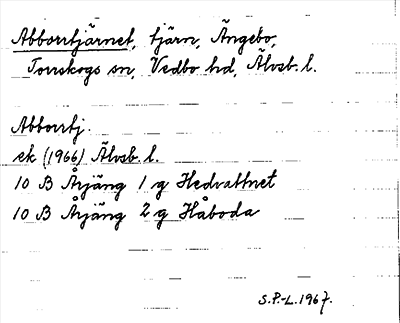 Abborrtjärnet, tjärn, Ängebo,
Torrskogs sn, Vedbo hd, Älvsb. l.
Abborrtj.
ek (1966) Älvsb. l.
10 B Årjäng 1 g Hedvattnet
10 B Årjäng 2 g Håboda
S.P.-L. 1967.